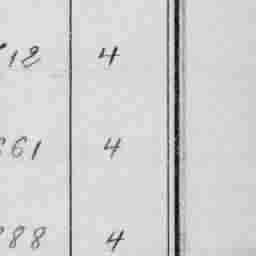 12 4
61 4
88 4